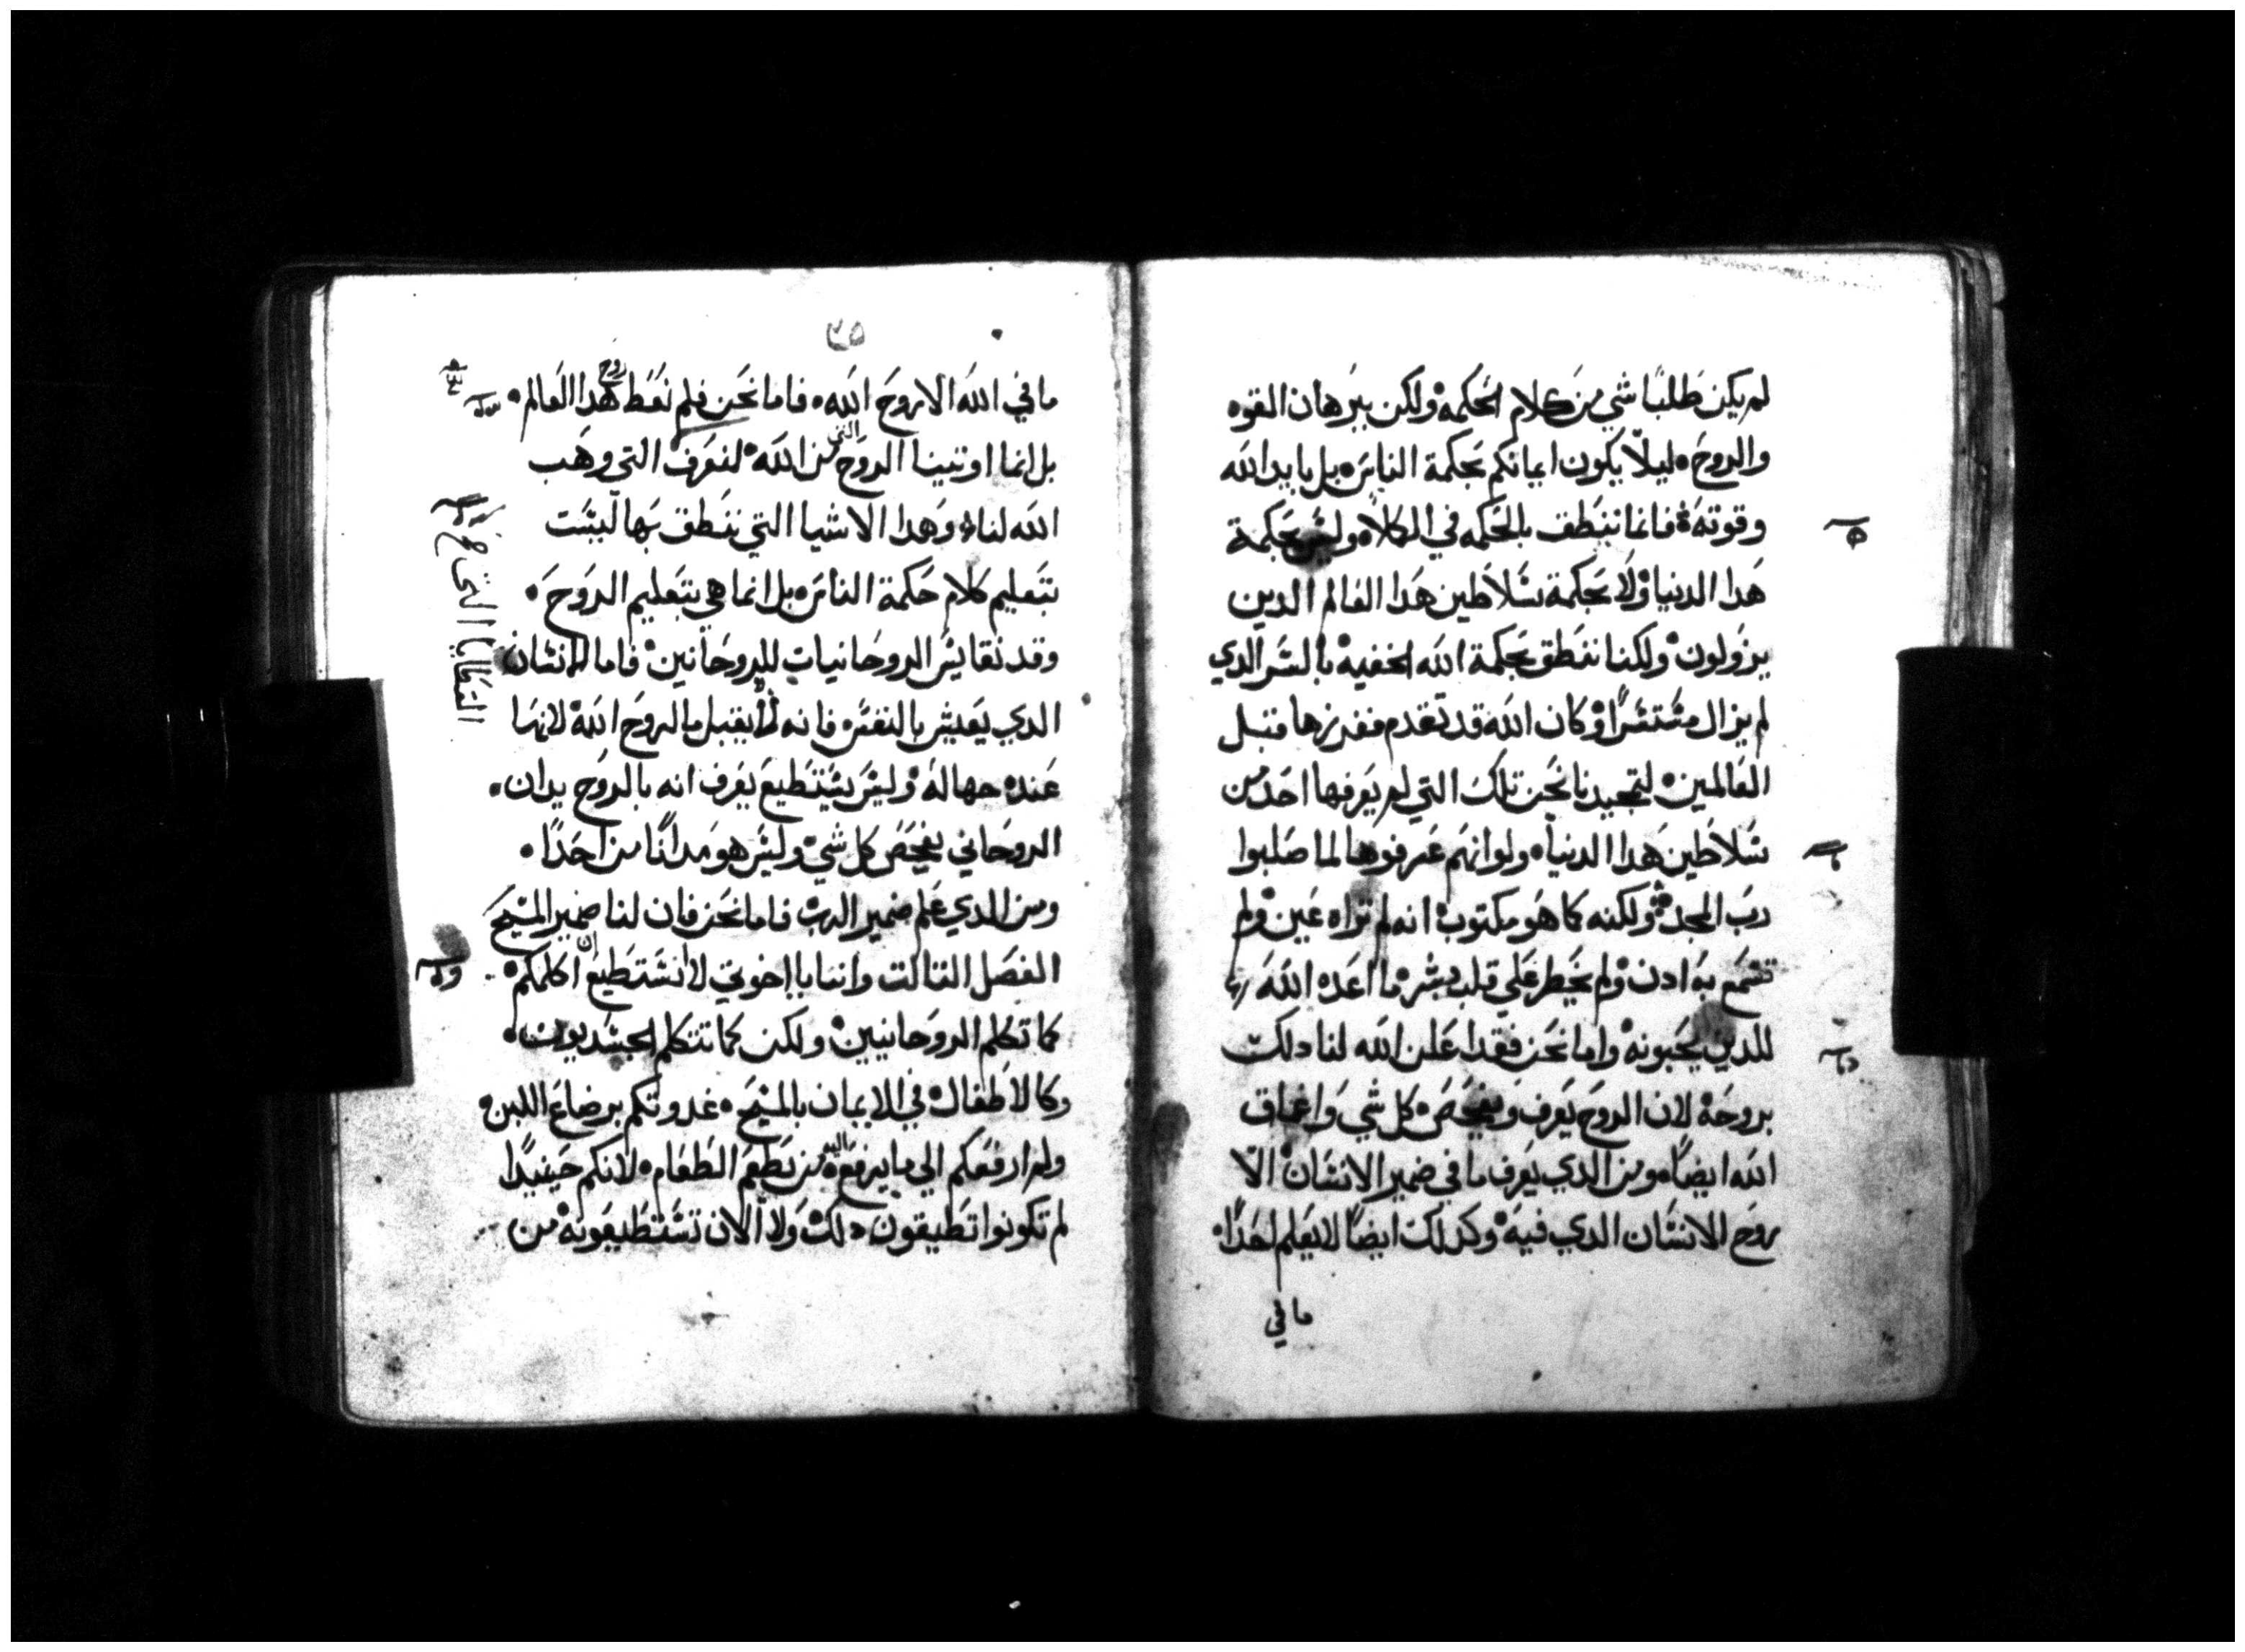 لم يكن طلبًا شي من كلام الحكمة ولكن ببرهان القوه
والروح ليلّا يكون ايمانكم بحكمة الناس بل بايد الله
وقوته فانما ننطق بالحكمه في الكلا وليس بحكمة
هدا الدنيا ولا بحكمة سلاطين هدا العالم الدين
يزولون ولكنا ننطق بحكمة الله الخفيه بالسر الدي
لم يزال مستترًا وكان الله قد تقدم ففرزها قبل
العالمين لتمجيدنا نحن تلك التي لم يعرفها احد من
سلاطين هدا الدنيا ولو انهم عرفوها لما صلبوا
رب المجد ولكنه كما هو مكتوب انه لم تراه عين ولم
تسمع به ادن ولم يخطر علي قلب بشر ما اعده الله
للدين يحبونه واما نحن فقد اعلن الله لنا دلك
بروحه لان الروح يعرف ويفحص كل شي واعماق
الله ايضًا ومن الدي يعرف ما في ضمير الانسان الّا
روح الانسان الدي فيه وكدلك ايضًا لا يعلم احدًا
ما في
٢٥
ما في الله الا روح الله فاما نحن فلم نعط روح هدا العالم
بل انما اوتينا الروح التي من الله لنعرف التي وهب
الله لنا وهدا الاشيا التي ننطق بها ليست
بتعليم كلام حكمة الناس بل انما هي بتعليم الروح
وقد نقايس الروحانيات للروحانين فاما الانسان
الدي يعيش بالنفس فانه لا يقبل ما لروح الله لانها
عنده جهاله وليس يستطيع يعرف انه بالروح يدان
الروحاني يفحص كل شي وليس هو مدانًا من احدًا
ومن الدي علم ضمير الرب فاما نحن فان لنا ضمير المسيح
الفصل التالت وانا يا اخوتي لا نستطيع ان اكلمكم
كما تكلم الروحانيين ولكن كما نتكلم الجسديون
وكالاطفال في الايمان بالمسيح غدوتكم برضاع اللبن
ولم ارفعكم الي ما يرفع اليه من يطعم الطعام لانكم حينيدًا
لم تكونوا تطيقون دلك ولا الان تستطيعونه من